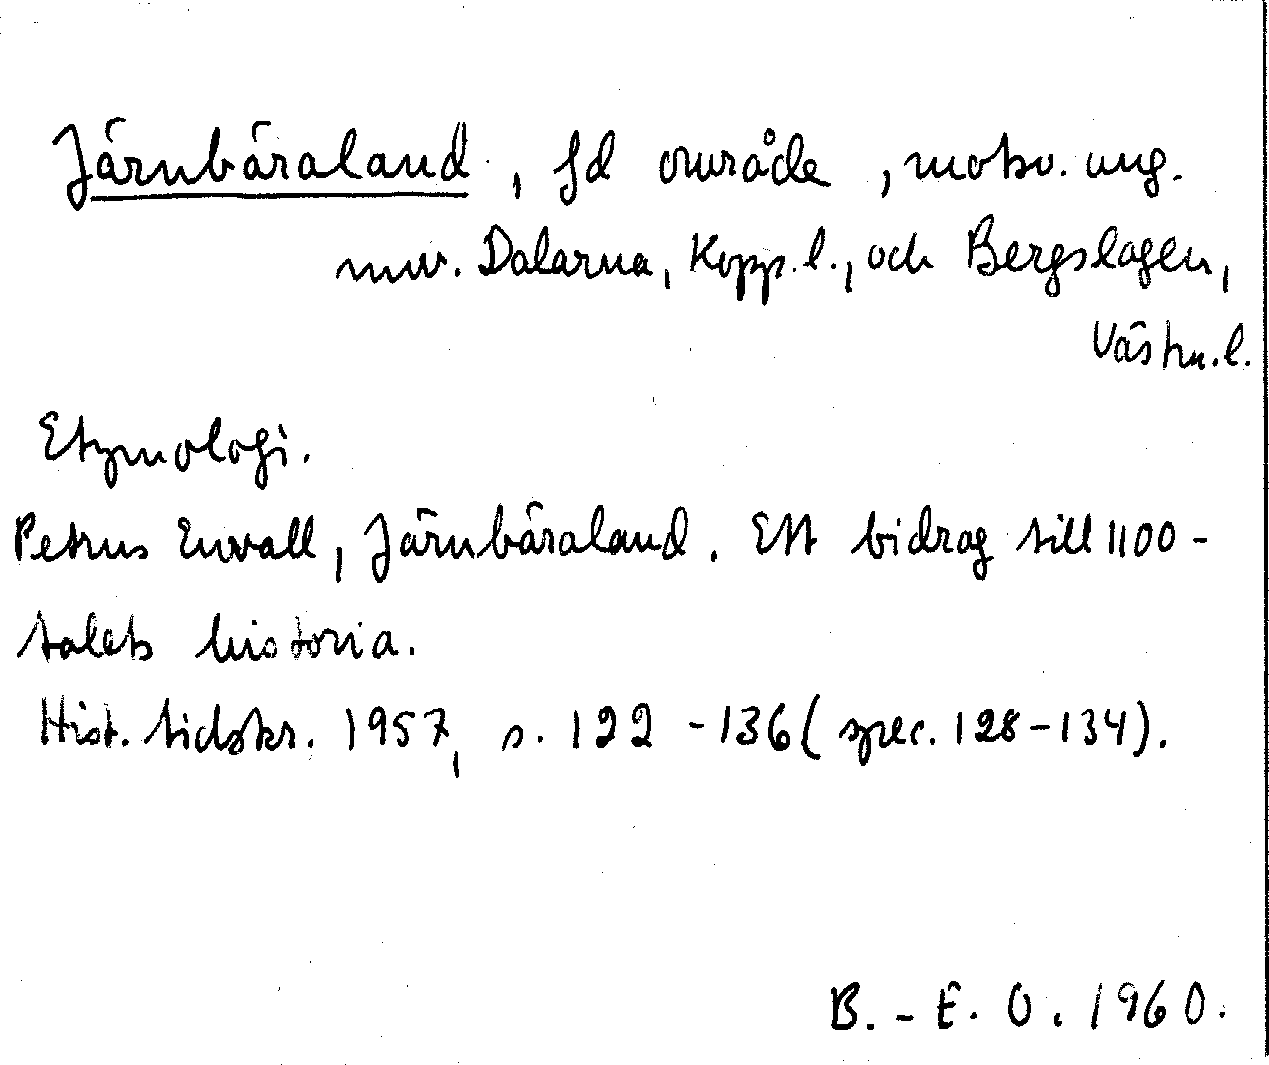 Järnbäraland, fd område, motsv. ung.
nuv. Dalarna, Kopp.l., och Bergslagen,
Västm.l.
Etymologi.
Petrus Envall, Järnbäraland. Ett bidrag till 1100-
talets historia.
Hist. tidskr. 1957, s. 122-136 (spec. 128-134).
B.-E. O. 1960.